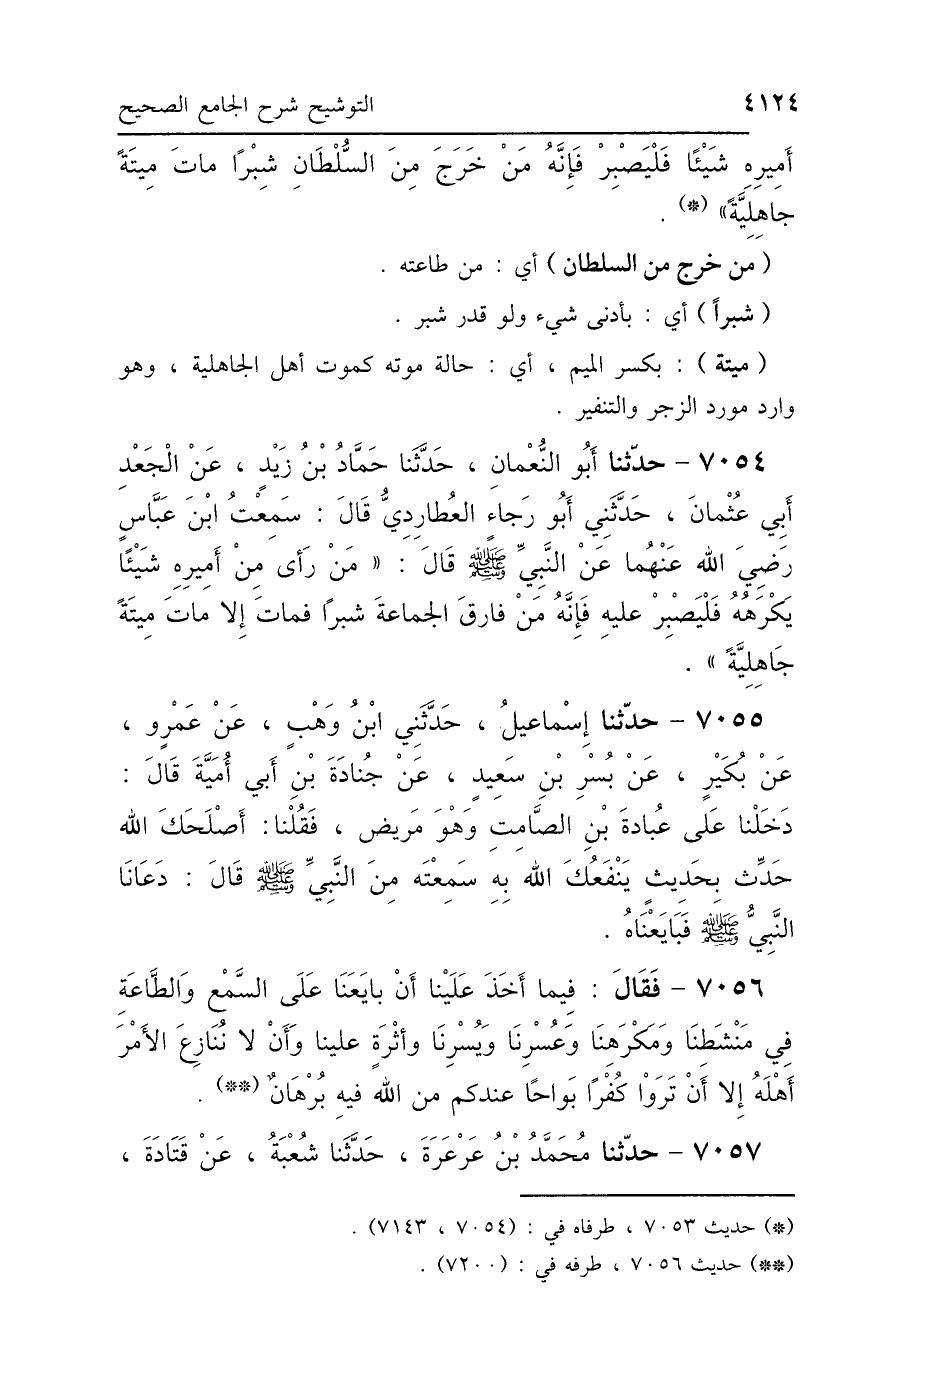 ٤١٢٤ التوشيح شرح الجامع الصحيح
أَمِيرِهِ شَيْئًا فَلْيَصْبِرْ فَإِنَّهُ مَنْ خَرَجَ مِنَ السُّلْطَانِ شِبْرًا ماتَ مِيتَةً
جاهِلِيَّةً» (*) .
( من خرج من السلطان ) أي : من طاعته .
( شبراً ) أي : بأدنى شيء ولو قدر شبر .
( ميتة ) : بكسر الميم ، أي : حالة موته كموت أهل الجاهلية ، وهو
وارد مورد الزجر والتنفير .
٧٠٥٤ - حدّثنا أَبُو النُّعْمانِ ، حَدَّثَنا حَمَّادُ بْنُ زَيْدٍ ، عَنْ الْجَعْدِ
أَبِي عُثْمانَ ، حَدَّثَنِي أَبُو رَجاءٍ العُطارِدِيُّ قَالَ : سَمِعْتُ ابْنَ عَبَّاسٍ
رَضِيَ الله عَنْهُما عَنْ النَّبِيِّ ﷺ قَالَ : « مَنْ رَأى مِنْ أَمِيرِهِ شَيْئًا
يَكْرَهُهُ فَلْيَصْبِرْ عليهِ فَإِنَّهُ مَنْ فارقَ الجماعةَ شبرًا فماتَ إلا ماتَ مِيتَةً
جَاهِلِيَّةً » .
٧٠٥٥ - حدّثنا إِسْماعِيلُ ، حَدَّثَنِي ابْنُ وَهْبٍ ، عَنْ عَمْرٍو ،
عَنْ بُكَيْرٍ ، عَنْ بُسْرِ بْنِ سَعِيدٍ ، عَنْ جُنادَةَ بْنِ أَبي أُمَيَّةَ قَالَ :
دَخَلْنا عَلَى عُبادةَ بْنِ الصَّامِتِ وَهْوَ مَرِيض ، فَقُلْنا: أَصْلَحَكَ الله
حَدِّث بِحَدِيثٍ يَنْفَعُكَ الله بِهِ سَمِعْتَه مِنَ النَّبِيِّ ﷺ قَالَ : دَعَانَا
النَّبِيُّ ﷺ فَبَايَعْنَاهُ .
٧٠٥٦ - فَقَالَ : فِيما أَخَذَ عَلَيْنا أَنْ بايَعَنَا عَلَى السَّمْعِ وَالطَّاعَةِ
فِي مَنْشَطِنَا وَمَكْرَهِنَا وَعُسْرِنَا وَيُسْرِنَا وأثْرَةٍ علينا وَأَنْ لا نُنَازِعَ الأَمْرَ
أَهْلَهُ إِلا أَنْ تَرَوْا كُفْرًا بَواحًا عندكم من الله فيهِ بُرْهَانٌ (**) .
٧٠٥٧ - حدّثنا مُحَمَّدُ بْنُ عَرْعَرَةَ ، حَدَّثَنا شُعْبَةُ ، عَنْ قَتَادَةَ ،
(*) حديث ٧٠٥٣ ، طرفاه في : (٧٠٥٤ ، ٧١٤٣) .
(**) حديث ٧٠٥٦ ، طرفه في : (٧٢٠٠) .